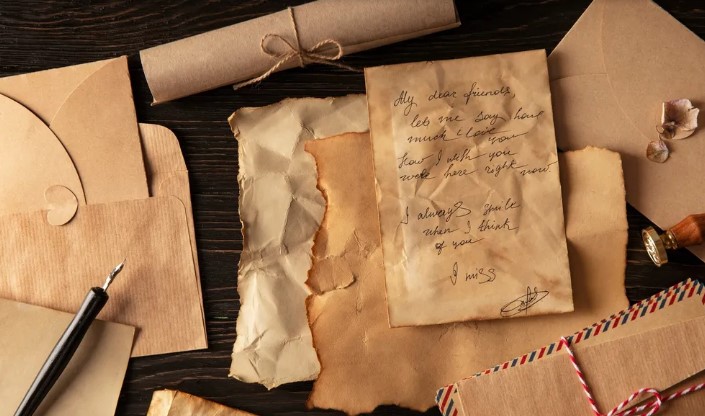 My dear friends,
let me say how
much I love you
How I wish you
were here right now.
I always smile
when I think
of you
I miss